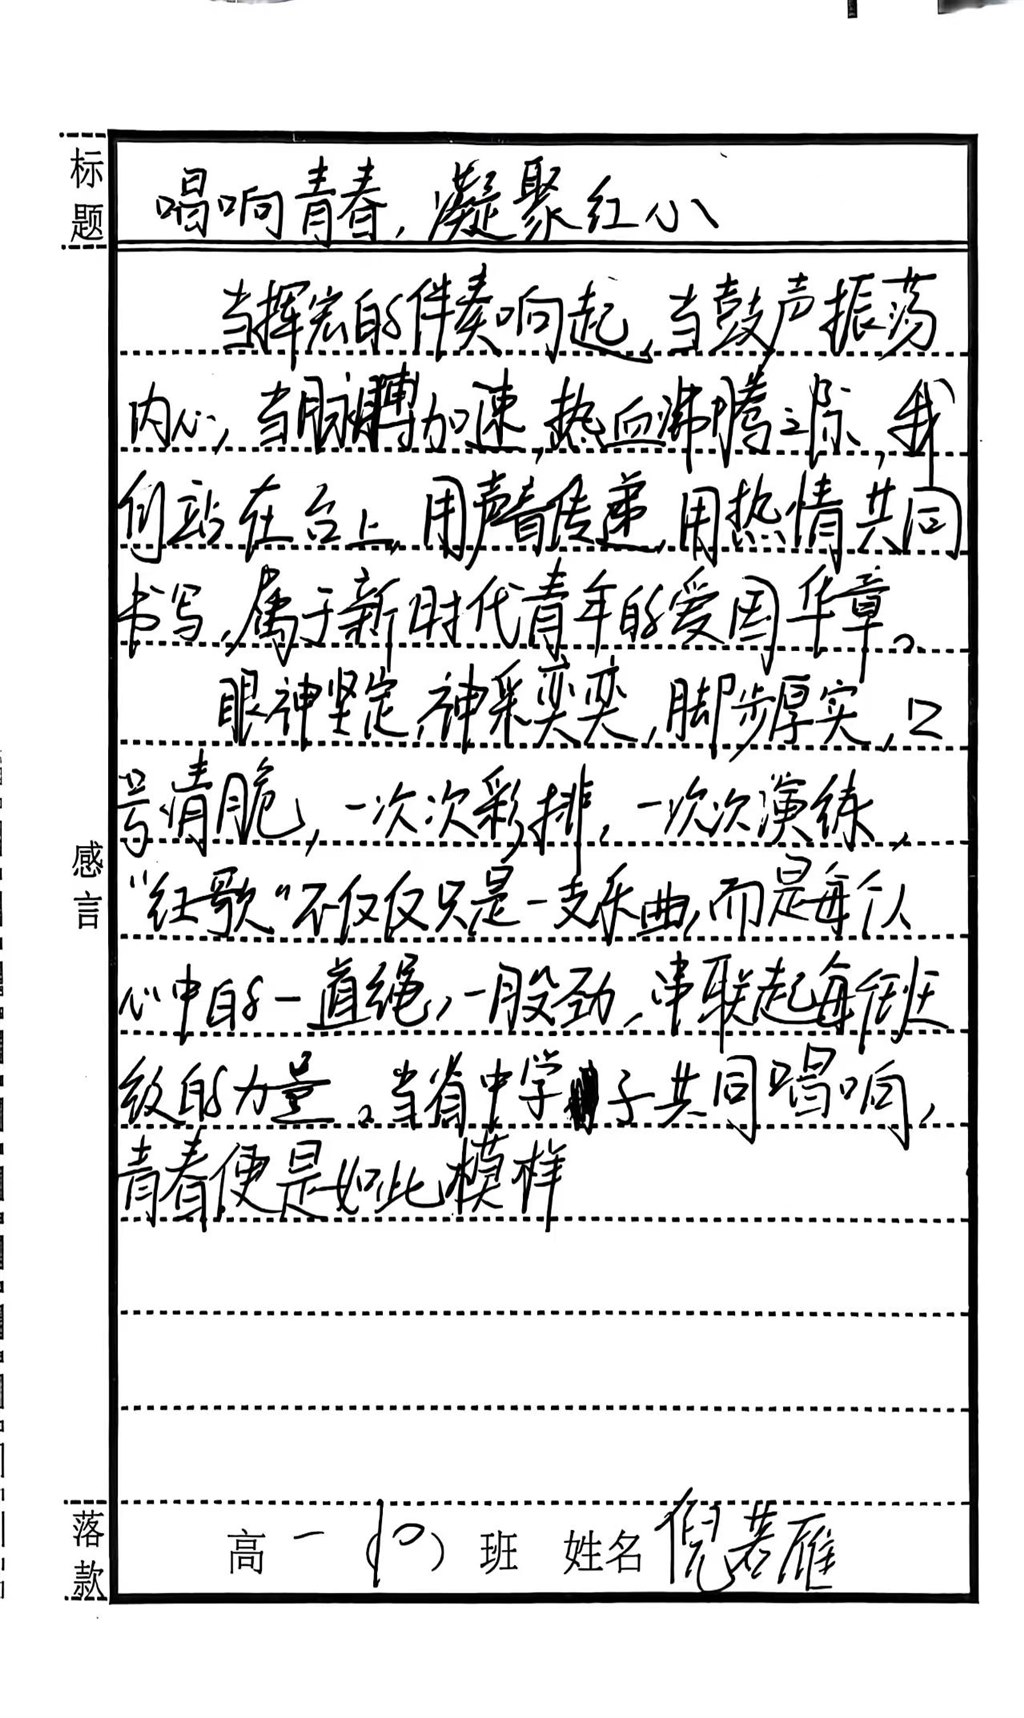 标题
唱响青春，凝聚红心
当挥宏的伴奏响起，当鼓声振荡
内心，当脉膊加速，热血沸腾之际，我
们站在台上，用声音传递，用热情共同
书写，属于新时代青年的爱国华章。
眼神坚定，神采奕奕，脚步厚实，口
号清脆，一次次彩排，一次次演练，
感言
“红歌”不仅仅只是一支乐曲，而是每个人
心中的一道绳，一股劲，串联起每个班
级的力量。当省中学子共同唱响，
青春便是如此模样
落款
高一（10）班 姓名倪若雁